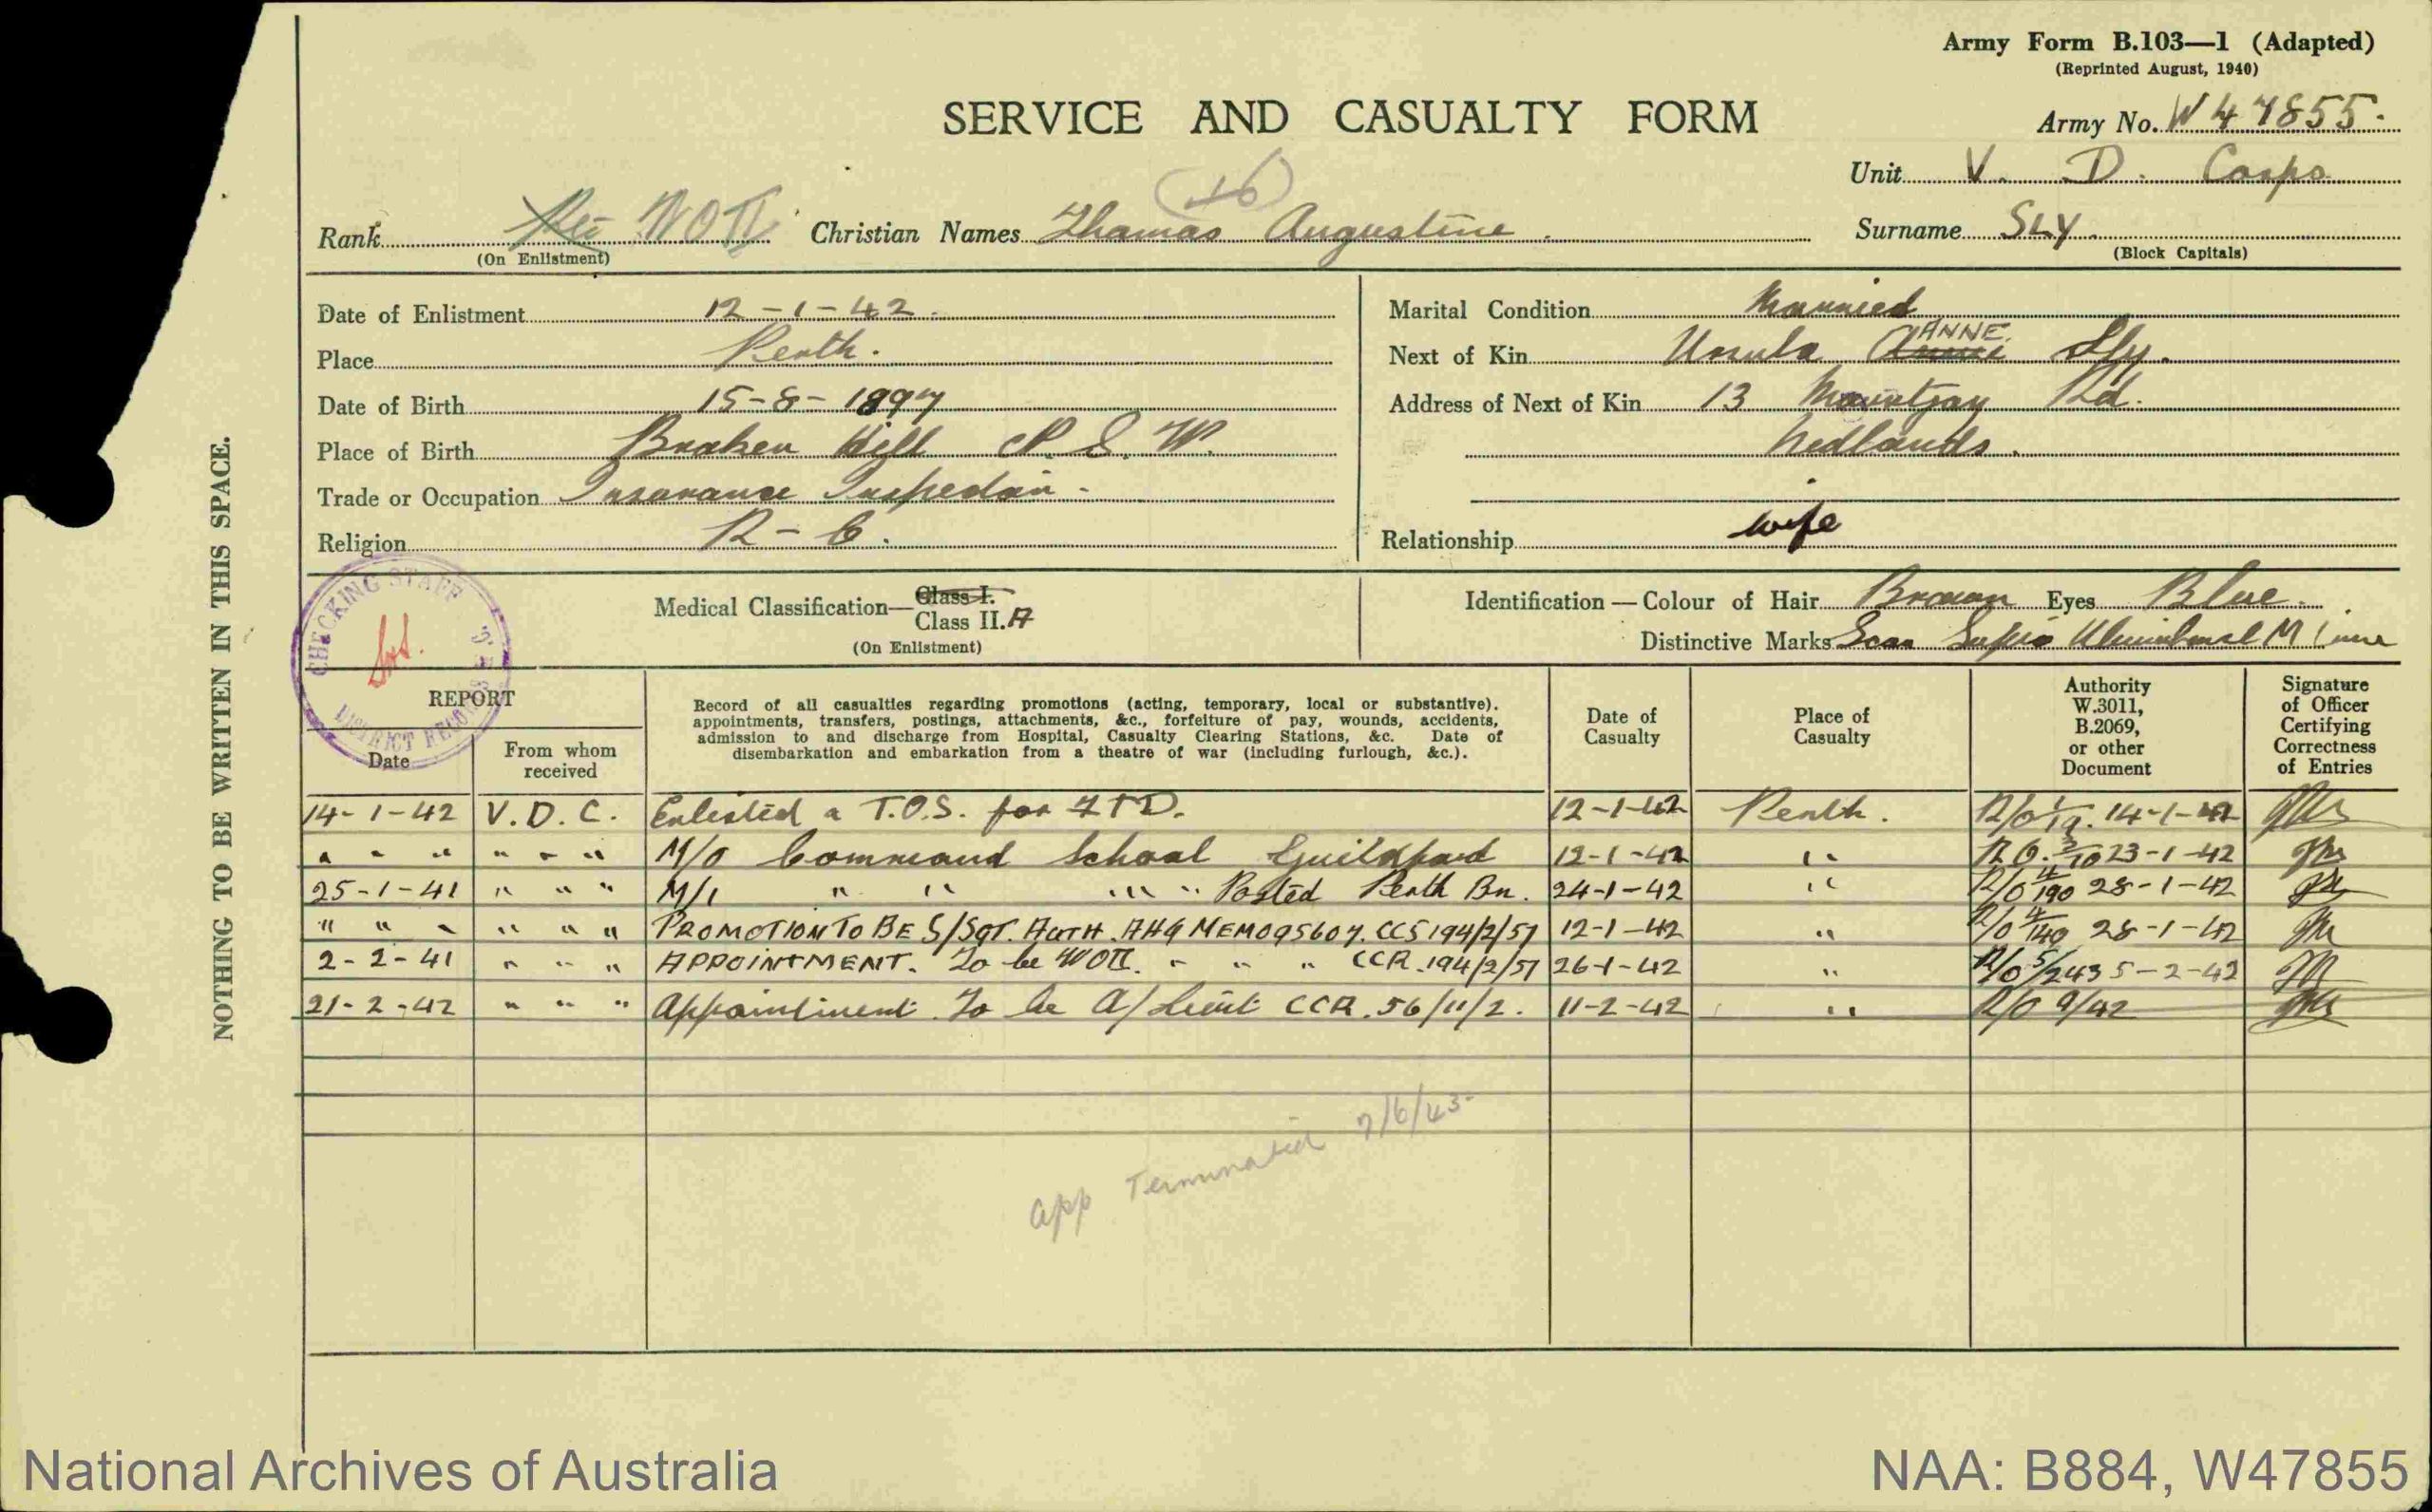 Army Form B.103—1 (Adapted)
(Reprinted August, 1940)
SERVICE AND CASUALTY FORM
Army No. W47855.
Unit V. D. Corps
Rank Pte WOII Christian Names Thomas Augustine. Surname SLY.
(On Enlistment) (Block Capitals)
Date of Enlistment 12-1-42.
Place Perth.
Date of Birth 15-8-1897
Place of Birth Broken Hill N. S. W.
Trade or Occupation Insurance Inspector.
Religion R-C.
Marital Condition Married
ANNE
Next of Kin Ursula Annie Sly.
Address of Next of Kin 13 Mountjoy Rd.
Nedlands.
Relationship wife
CHECKING STAFF
DISTRICT RECORDS
Medical Classification—Class I.
Class II.A
(On Enlistment)
Identification—Colour of Hair Brown Eyes Blue.
Distinctive Marks Scar
REPORT
Date
From whom received
Record of all casualties regarding promotions (acting, temporary, local or substantive).
appointments, transfers, postings, attachments, &c., forfeiture of pay, wounds, accidents,
admission to and discharge from Hospital, Casualty Clearing Stations, &c. Date of
disembarkation and embarkation from a theatre of war (including furlough, &c.).
Date of Casualty
Place of Casualty
Authority W.3011, B.2069, or other Document
Signature of Officer Certifying Correctness of Entries
14-1-42 V. D. C. Enlisted & T.O.S. for FTD. 12-1-42 Perth. 14-1-42
" " " " " " M/O Command School Guildford 12-1-42 " R.O. 3/10 23-1-42
25-1-41 " " " M/I " " " " Posted Perth Bn. 24-1-42 " R/O 4/190 28-1-42
" " " " " " PROMOTION TO BE S/SGT. AUTH. AHQ MEMO 95607. CCS 194/2/57 12-1-42 " R/O 4/140 28-1-42
2-2-41 " " " APPOINTMENT. To be WOII. " " " CCR. 194/2/57 26-1-42 " R/O 5/243 5-2-42
21-2-42 " " " Appointment. To be A/Lieut CCR. 56/11/2. 11-2-42 " R/O 9/42
App Terminated 7/6/45
NOTHING TO BE WRITTEN IN THIS SPACE.
National Archives of Australia
NAA: B884, W47855